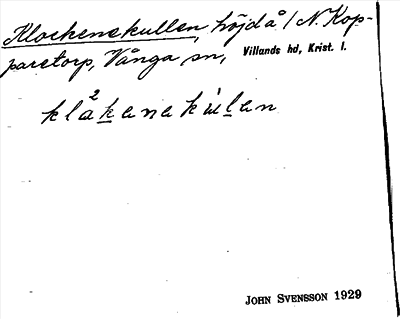 Klockenekullen, höjd å 1 N. Kop-
paretorp, Vånga sn, Villands hd, Krist. l.
klåkenekulen
JOHN SVENSSON 1929